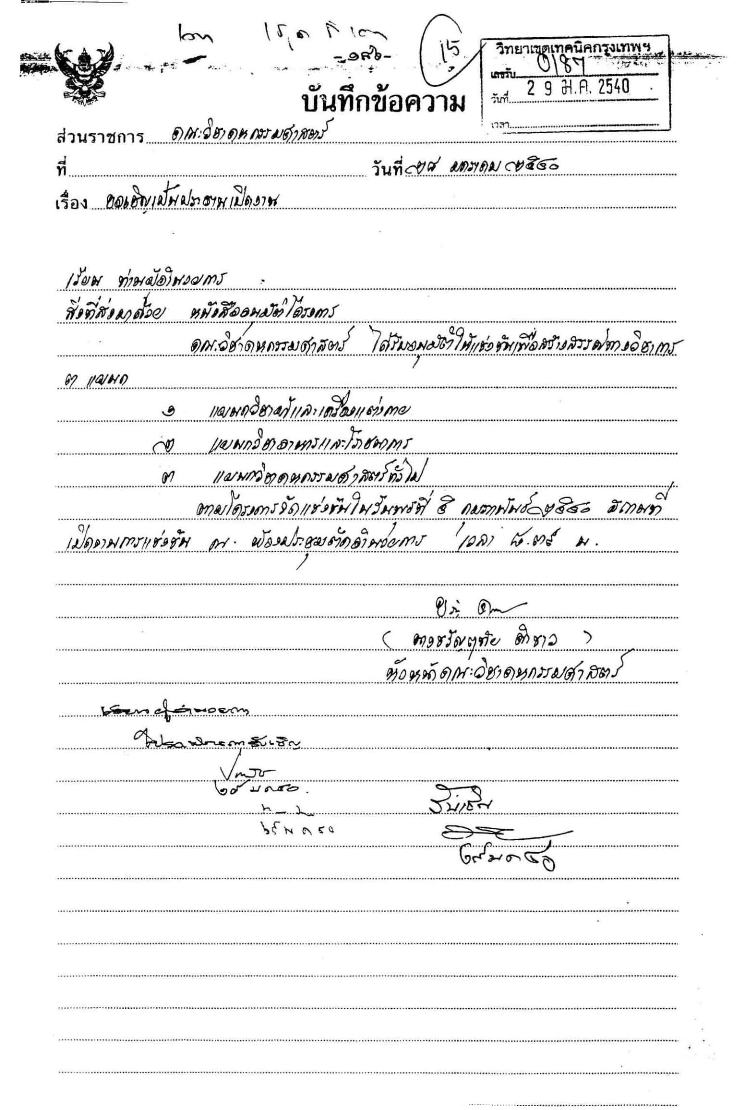 -๑๙๖-
15
วิทยาเขตเทคนิคกรุงเทพฯ
เลขรับ 0187
วันที่ 2 9 ม.ค. 2540
เวลา
บันทึกข้อความ
ส่วนราชการ คณะวิชาคหกรรมศาสตร์
ที่ วันที่ ๒๘ มกราคม ๒๕๔๐
เรื่อง ขอเชิญเป็นประธานเปิดงาน
เรียน ท่านผู้อำนวยการ
สิ่งที่ส่งมาด้วย หนังสืออนุมัติโครงการ
คณะวิชาคหกรรมศาสตร์ ได้รับอนุมัติให้แข่งขันเพื่อสร้างสรรค์ทางวิชาการ
๓ แผนก
๑ แผนกวิชาผ้าและเครื่องแต่งกาย
๒ แผนกวิชาอาหารและโภชนาการ
๓ แผนกวิชาคหกรรมศาสตร์ทั่วไป
ตามโครงการจัดแข่งขันในวันพุธที่ ๕ กุมภาพันธ์ ๒๕๔๐ สถานที่
เปิดงานการแข่งขัน ณ. ห้องประชุมตึกอำนวยการ เวลา ๘.๓๐ น.
หัวหน้าคณะวิชาคหกรรมศาสตร์
เรียน ผู้อำนวยการ
๒๙ ม.ค. ๔๐
รับเชิญ
๒๙ ม.ค. ๔๐